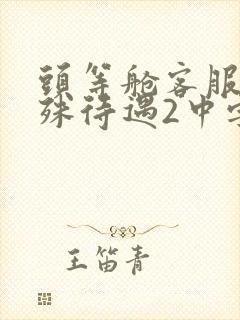 頭等舱客服
殊待遇2中字
王笛青